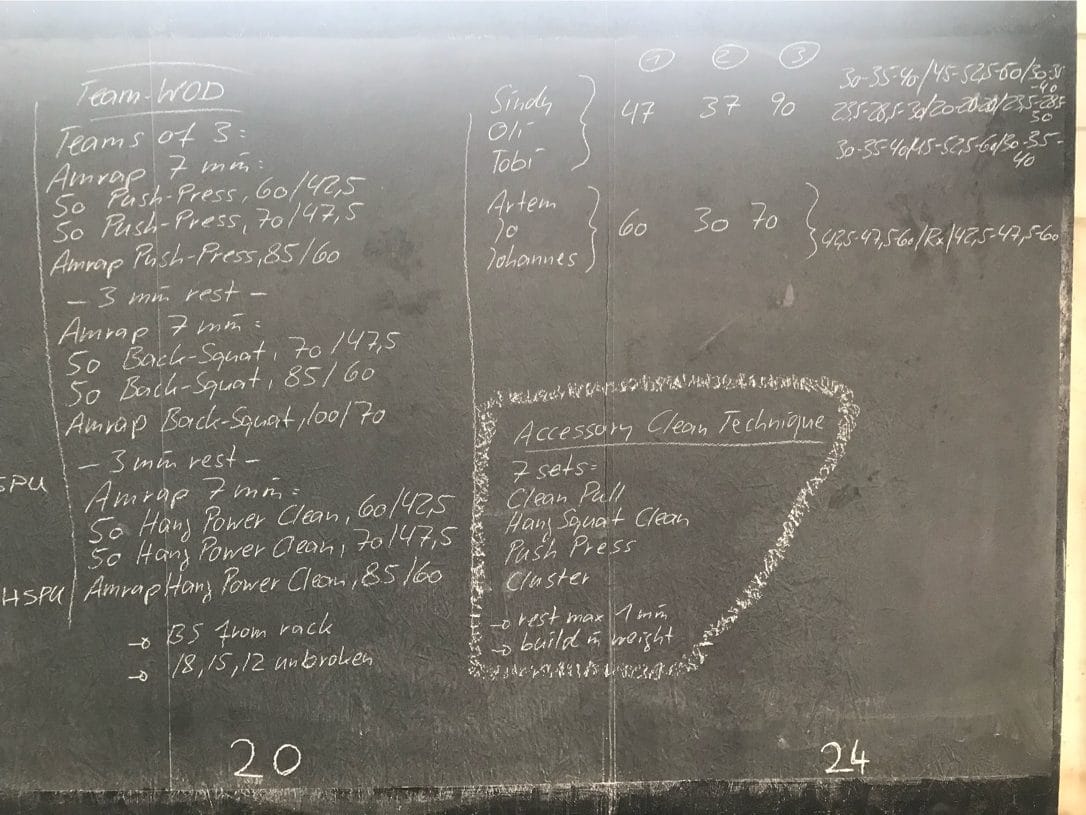 Team-WOD
Teams of 3:
Amrap 7 min:
50 Push-Press, 60/42,5
50 Push-Press, 70/47,5
Amrap Push-Press, 85/60
- 3 min rest -
Amrap 7 min:
50 Back-Squat, 70/47,5
50 Back-Squat, 85/60
Amrap Back-Squat, 100/70
- 3 min rest -
Amrap 7 min:
50 Hang Power Clean, 60/42,5
50 Hang Power Clean, 70/47,5
Amrap Hang Power Clean, 85/60
→ BS from rack
→ 18, 15, 12 unbroken
HSPU
20
1 2 3
Sindy
Oli
Tobi
47 37 90
30-35-40/45-52,5-60/30-35
-40
30-35-
40
Artem
Jo
Johannes
60 30 70
42,5-47,5-60/Rx/42,5-47,5-60
Accessory Clean Technique
7 sets:
Clean Pull
Hang Squat Clean
Push Press
Cluster
→ rest max 1 min
→ build in weight
24